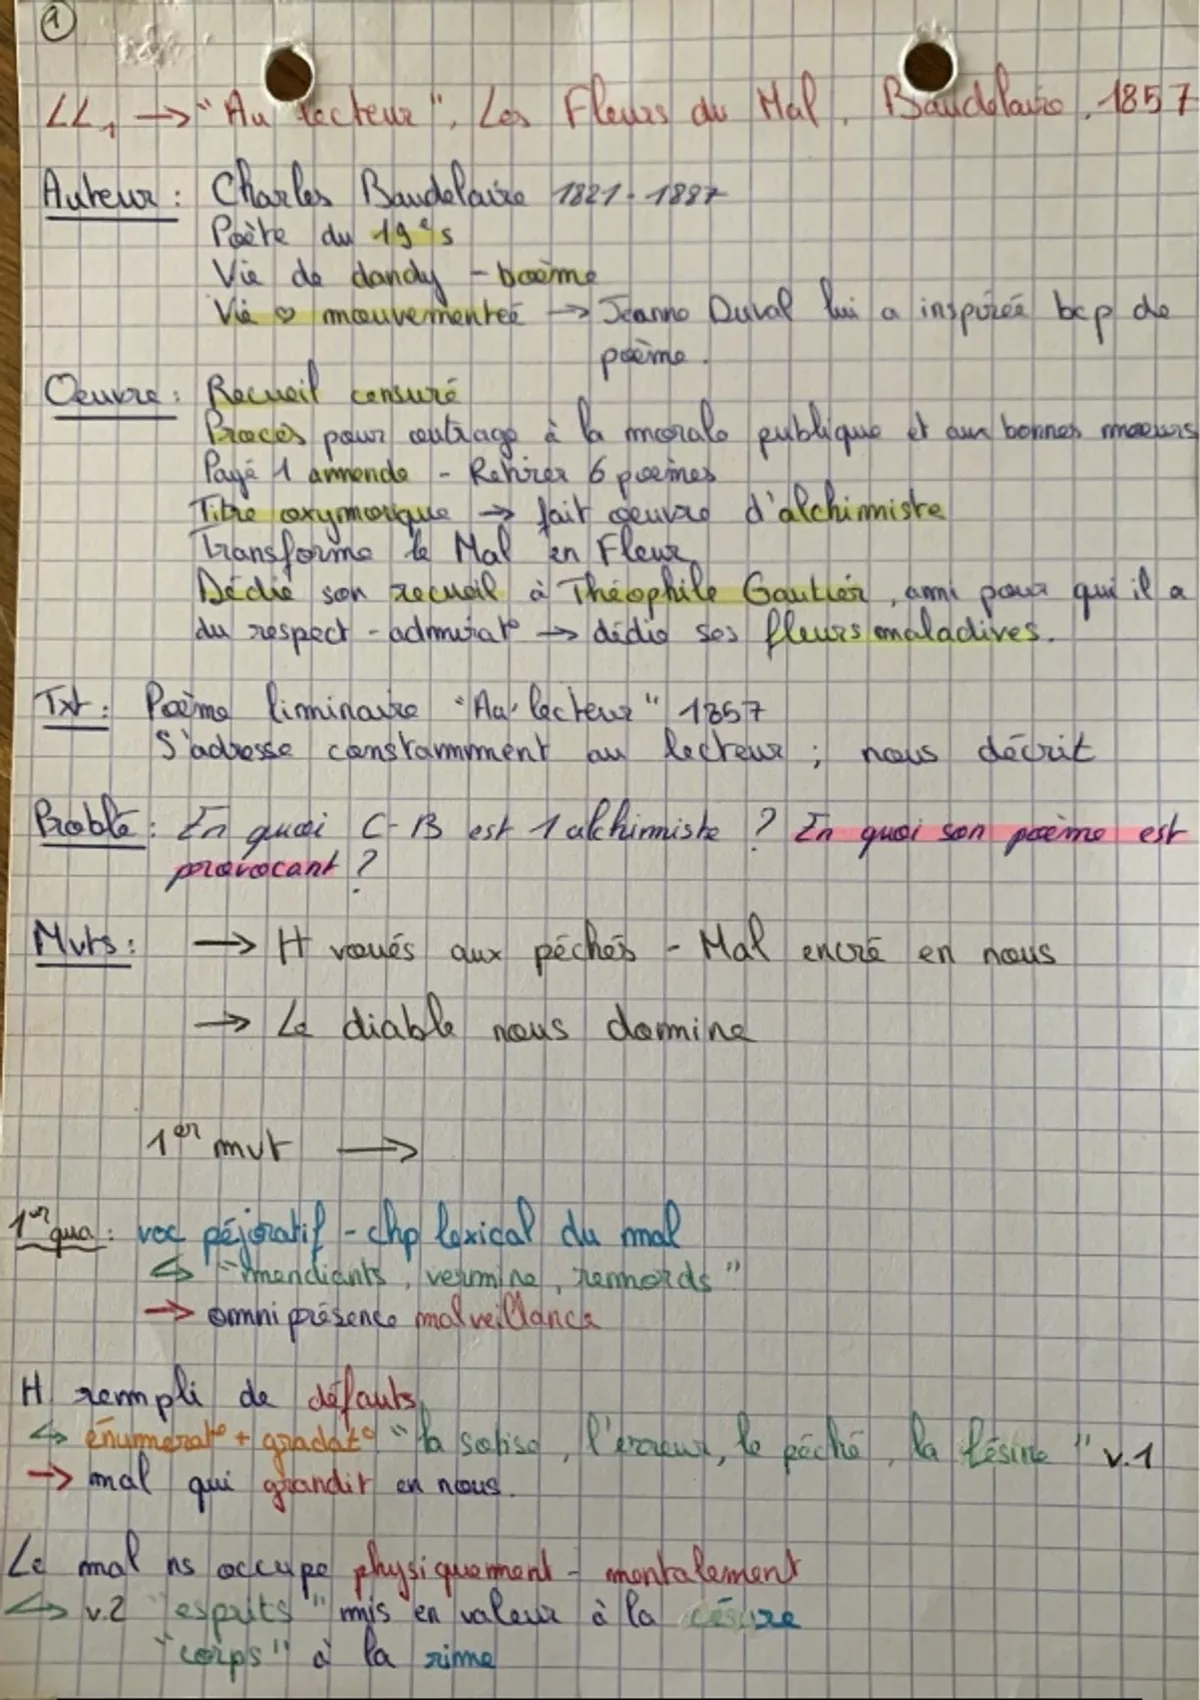 1
LL1 → "Au lecteur", Les Fleurs du Mal, Baudelaire, 1857
Auteur : Charles Baudelaire 1821-1887
Poète du 19e s
Vie de dandy - boème
Vie ♡ mouvementeé → Jeanne Duval lui a inspirée bcp de
poème.
Oeuvre : Recueil censuré
Procès pour outrage à la morale publique et aux bonnes moeurs
Payé 1 ammende - Retirer 6 poèmes
Titre oxymorique → fait oeuvre d'alchimiste
Transforme le Mal en Fleur
Dédie son recueil à Théophile Gautier, ami pour qui il a
du respect - admirat° → dédie ses fleurs maladives.
Txt : Poème liminaire "Au lecteur" 1857
S'adresse constamment au lecteur ; nous décrit
Problé : En quoi C-B est 1 alchimiste ? En quoi son poème est
provocant ?
Mvts : → H voués aux péchés - Mal encré en nous
→ Le diable nous domine
1er mvt →
1er qua : voc péjoratif - chp lexical du mal
↳ "mendiants, vermine, remords"
→ omniprésence malveillance
H rempli de défauts
↳ énumerat° + gradat° "la sotise, l'erreur, le péché, la lésine" v.1
→ mal qui grandit en nous.
Le mal ns occupe physiquement - mentalement
↳ v.2 "esprits" mis en valeur à la césure
"corps" à la rime